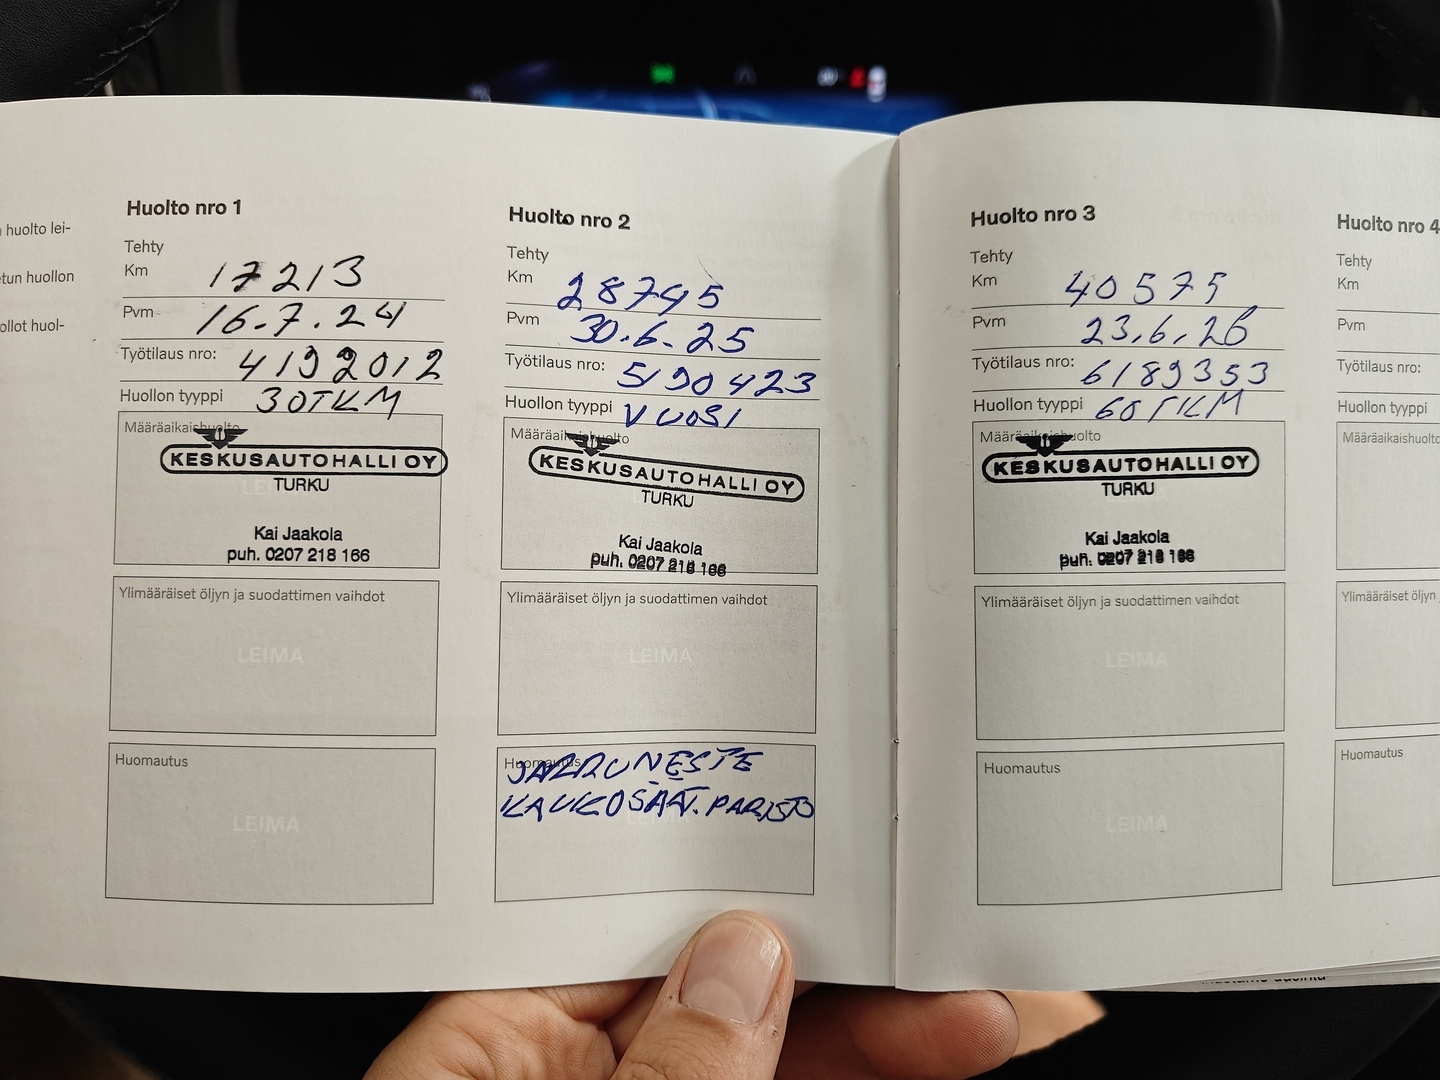 n huolto lei-
etun huollon
ollot huol-
Huolto nro 1
Tehty
Km 17213
Pvm 16.7.24
Työtilaus nro: 4192012
Huollon tyyppi 30TKM
Määräaikaishuolto
KESKUSAUTOHALLI OY
TURKU
Kai Jaakola
puh. 0207 218 166
Ylimääräiset öljyn ja suodattimen vaihdot
LEIMA
Huomautus
LEIMA
Huolto nro 2
Tehty
Km 28745
Pvm 30.6.25
Työtilaus nro: 5190423
Huollon tyyppi VUOSI
Määräaikaishuolto
KESKUSAUTOHALLI OY
TURKU
Kai Jaakola
puh. 0207 218 166
Ylimääräiset öljyn ja suodattimen vaihdot
LEIMA
Huomautus
JARRUNESTE
KAUKOSÄÄT. PARISTO
LEIMA
Huolto nro 3
Tehty
Km 40575
Pvm 23.6.26
Työtilaus nro: 6189353
Huollon tyyppi 60TKM
Määräaikaishuolto
KESKUSAUTOHALLI OY
TURKU
Kai Jaakola
puh. 0207 218 166
Ylimääräiset öljyn ja suodattimen vaihdot
LEIMA
Huomautus
LEIMA
Huolto nro 4
Tehty
Km
Pvm
Työtilaus nro:
Huollon tyyppi
Määräaikaishuolto
Ylimääräiset öljyn
Huomautus